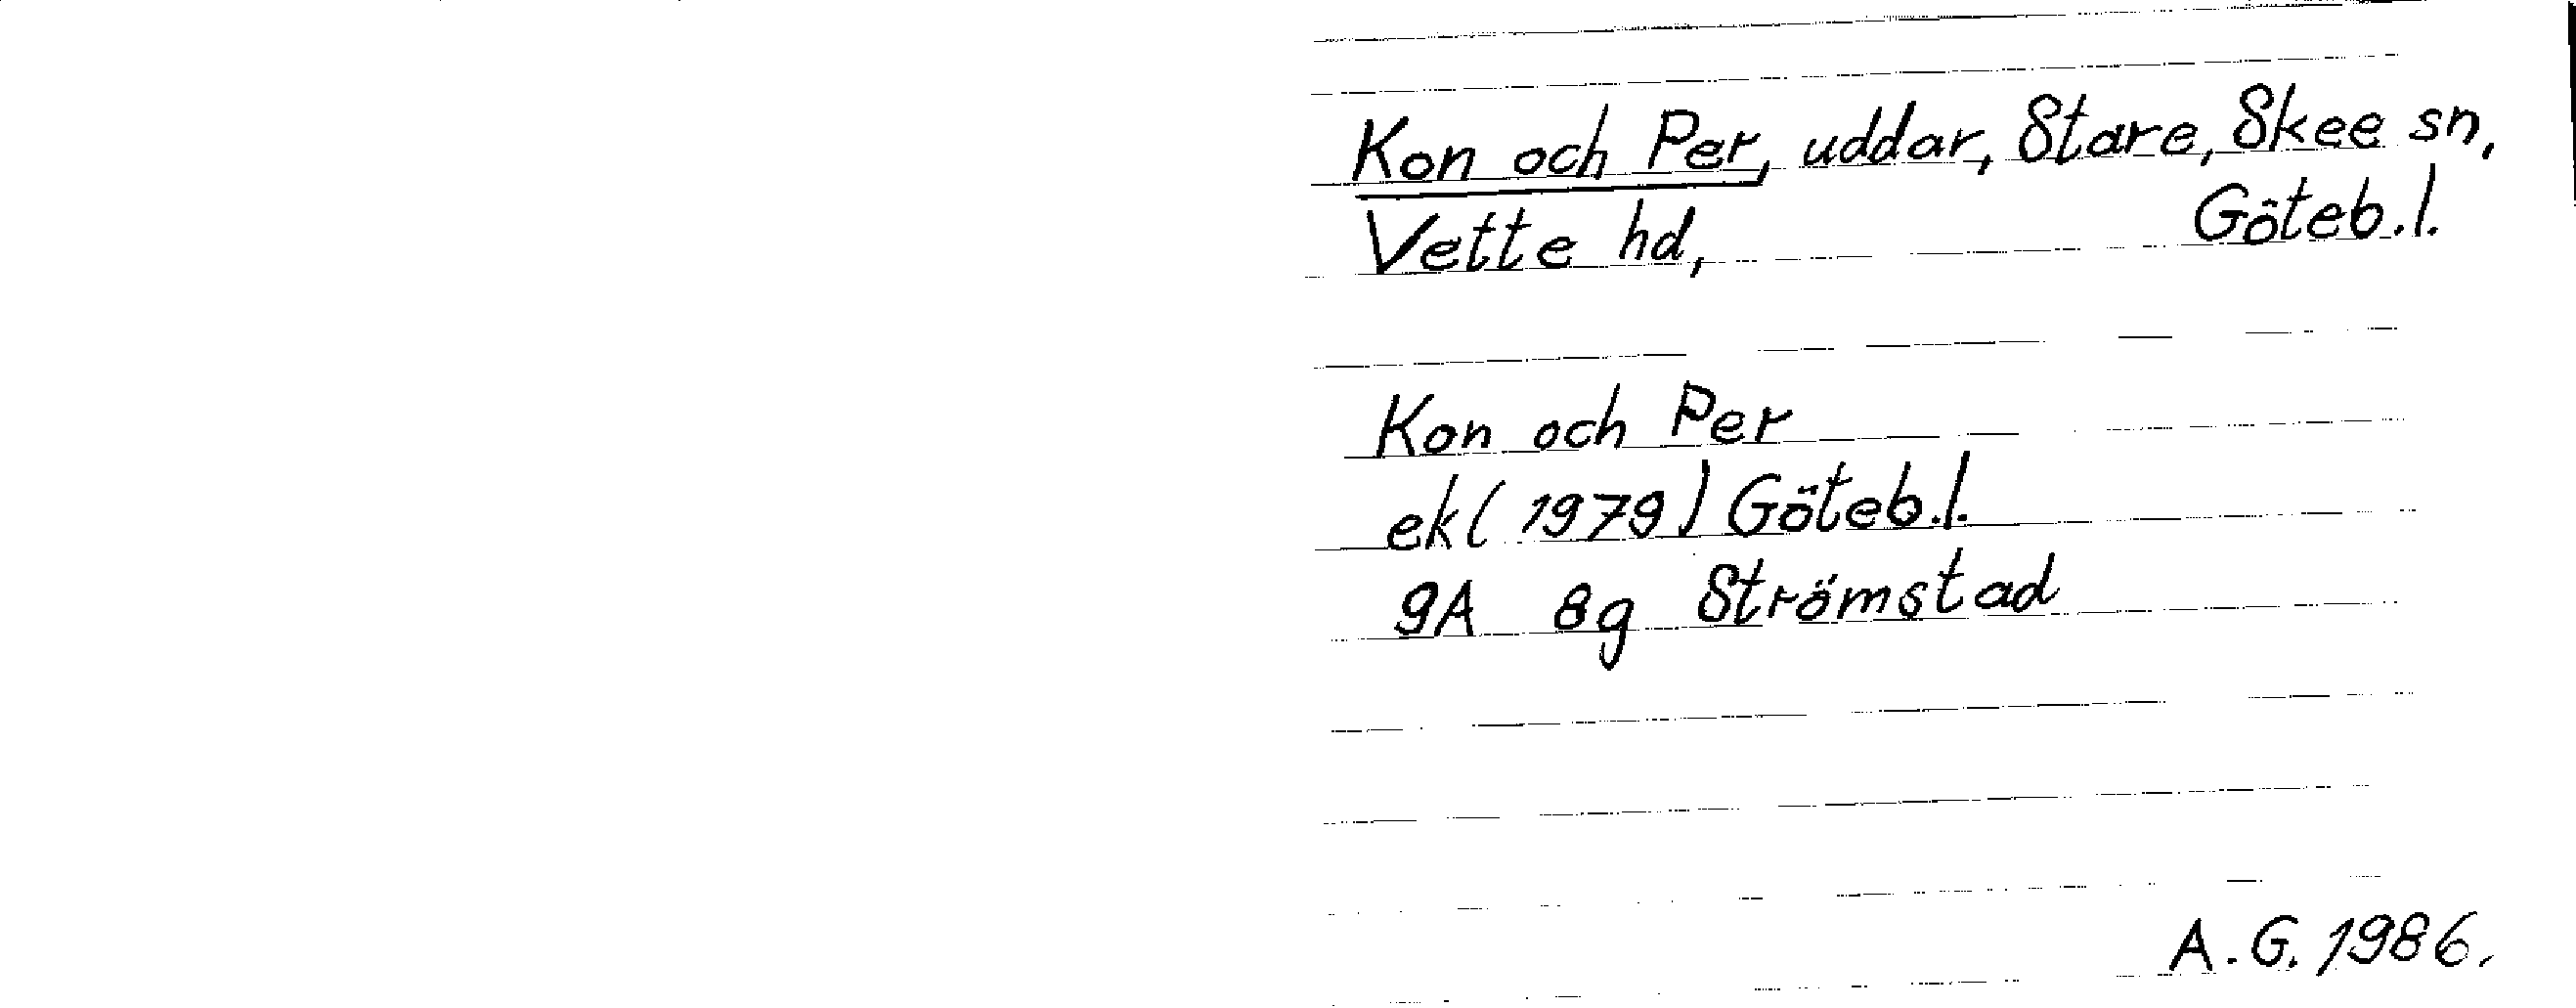 Kon och Per, uddar, Stare, Skee sn,
Vette hd, Göteb.l.
Kon och Per
ek (1979) Göteb.l.
9A 8g Strömstad
A.G. 1986.